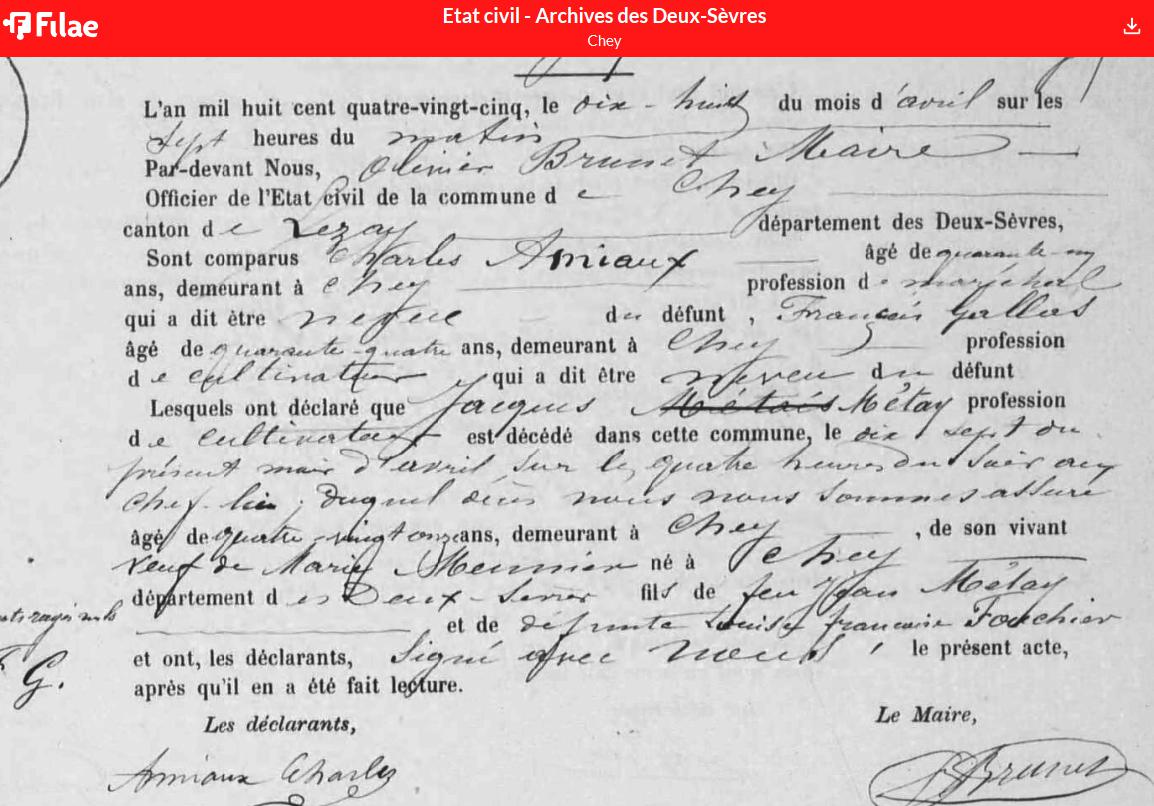 Filae
Etat civil - Archives des Deux-Sèvres
Chey
L'an mil huit cent quatre-vingt-cinq, le dix-huit du mois d'avril sur les
sept heures du matin
Par-devant Nous, Olivier Brunet Maire
Officier de l'Etat Civil de la commune de Chey
canton de Lezay département des Deux-Sèvres,
Sont comparus Charles Amiaux âgé de quarante-
ans, demeurant à Chey profession de maréchal
qui a dit être neveu du défunt, François Gallas
âgé de quarante-quatre ans, demeurant à Chey profession
de cultivateur qui a dit être neveu du défunt
Lesquels ont déclaré que Jacques Métais Métay profession
de cultivateur est décédé dans cette commune, le dix sept du
présent mois d'avril sur les quatre heures du soir au
chef-lieu ; duquel décès nous nous sommes assuré
âgé de quatre-vingt onze ans, demeurant à Chey, de son vivant
veuf de Marie Meunier né à Chey
département des Deux-Sèvres fils de feu Jean Métay
et de défunte Louise françoise Fouchier
et ont, les déclarants, signé avec nous, le présent acte,
G.
après qu'il en a été fait lecture.
Les déclarants, Le Maire,
Amiaux Charles Brunet